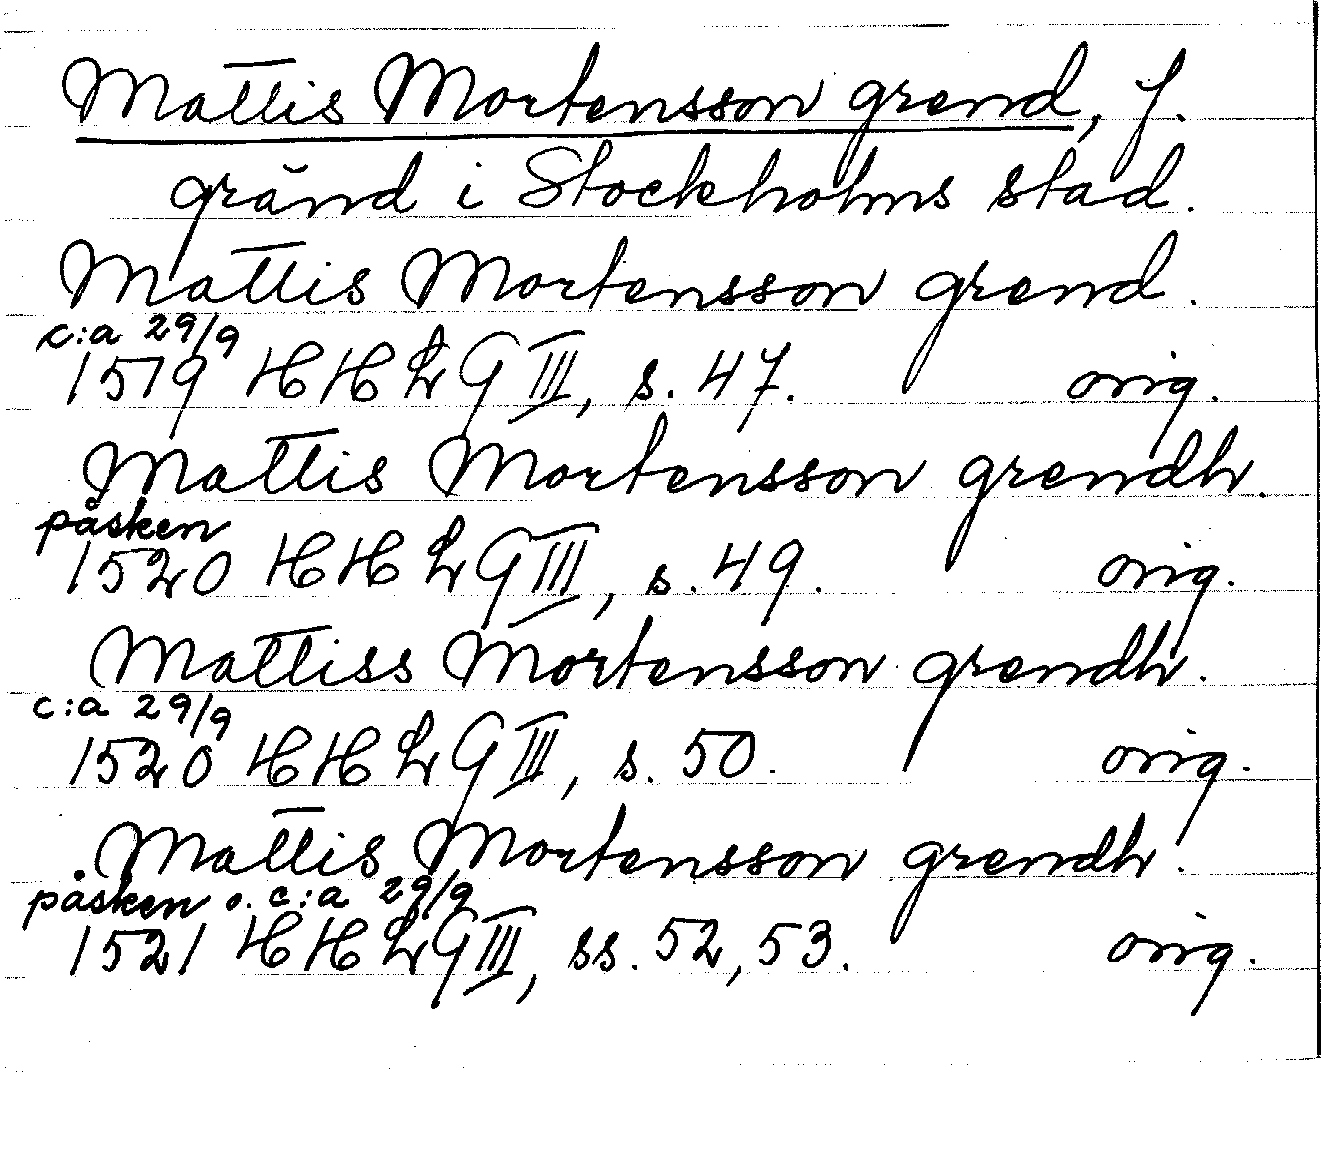 Mattis Mortensson grend, f.
gränd i Stockholms stad.
Mattis Mortensson grend.
c:a 29/9
1519 HHLG III, s. 47. orig.
Mattis Mortensson grendh.
påsken
1520 HHLG III, s. 49. orig.
Mattiss Mortensson grendh.
c:a 29/9
1520 HHLG III, s. 50. orig.
Mattis Mortensson grendh.
påsken o. c:a 29/9
1521 HHLG III, ss. 52, 53. orig.